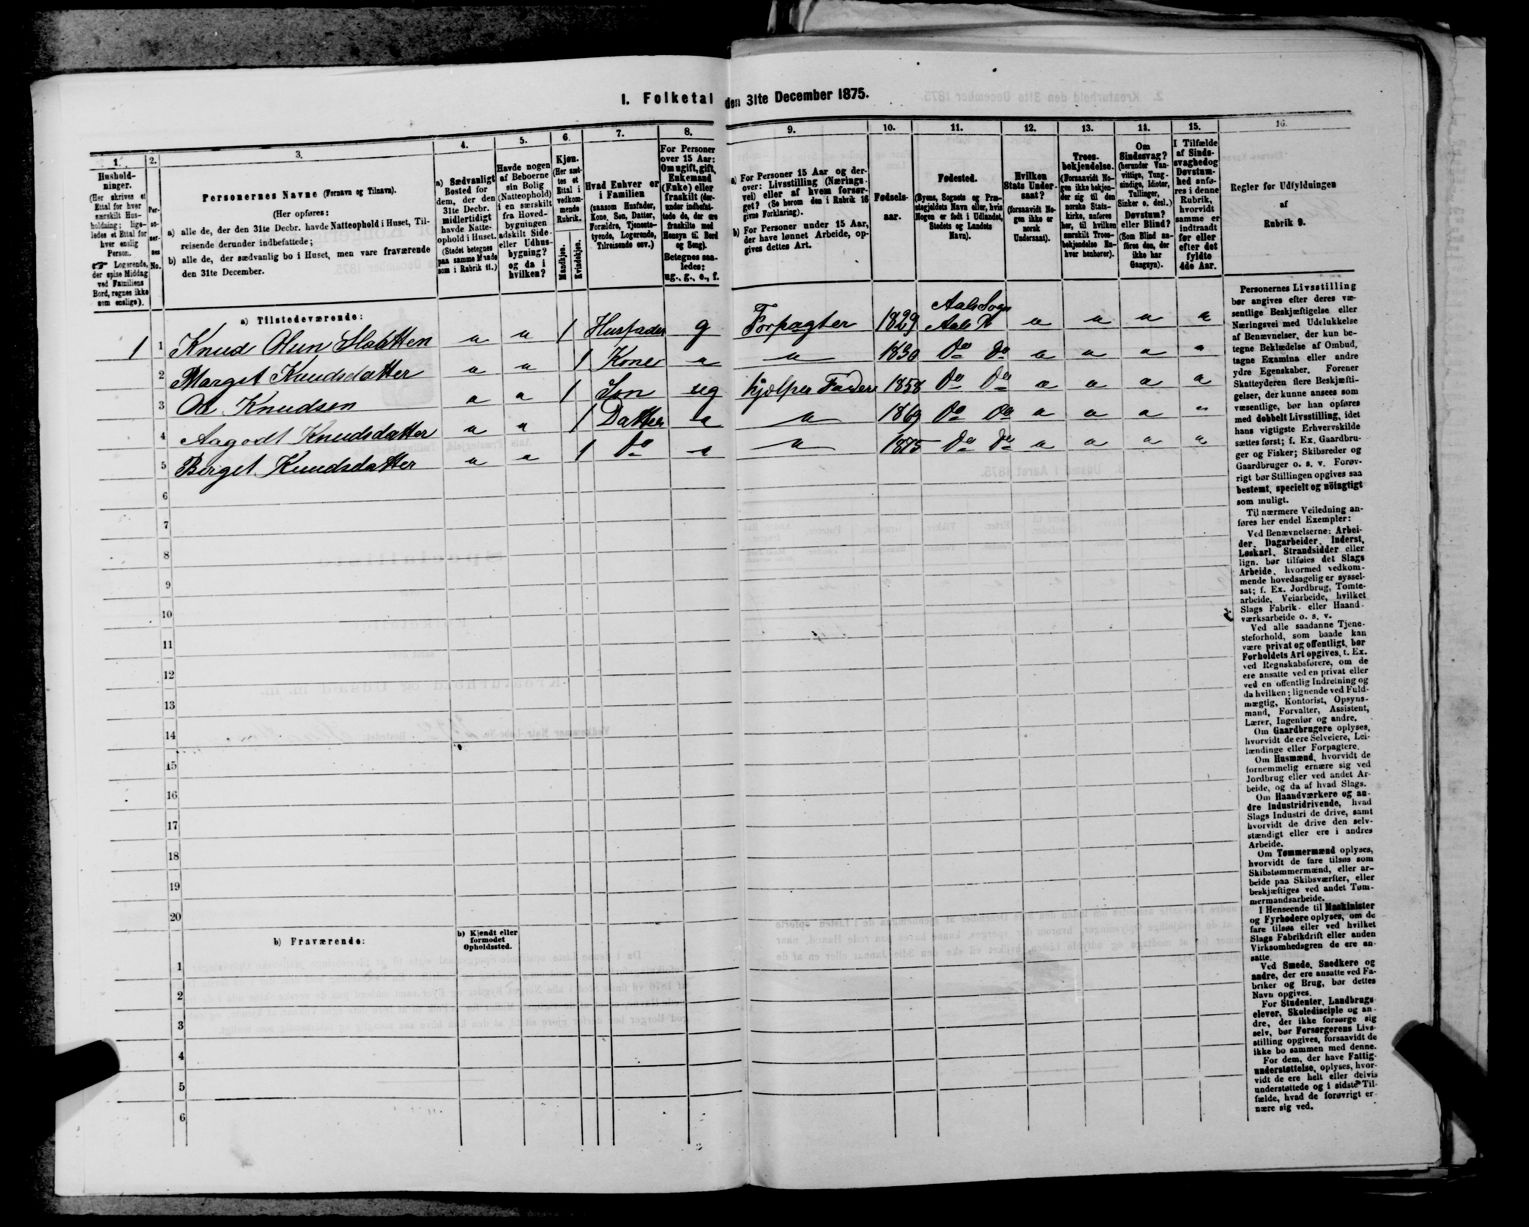 1. Folketal den 31te December 1875.
1.
Hushold-
ninger.
(Her skrives et
Ettal for hver
særskilt Hus-
holdning; lige-
ledes et Ettal for
hver enslig
Person.
☞ Logerende,
der spise Middag
ved Familiens
Bord, regnes ikke
som enslige).
2.
Per-
so-
ner-
nes
No.
3.
Personernes Navne (Fornavn og Tilnavn).
(Her opføres:
a) alle de, der den 31te Decbr. havde Natteophold i Huset, Til-
reisende derunder indbefattede;
b) alle de, der sædvanlig bo i Huset, men vare fraværende
den 31te December.
4.
a) Sædvanligt
Bosted for
dem, der den
31te Decbr.
midlertidigt
havde Natte-
ophold i Huset.
(Stedet betegnes
paa samme Maade
som i Rubrik 11.)
5.
Havde nogen
af Beboerne
sin Bolig
(Natteophold)
i en særskilt
fra Hoved-
bygningen
adskilt Side-
eller Udhus-
bygning?
og da i
hvilken?
6.
Kjøn.
(Her sæt-
tes et
Ettal i
vedkom-
mende
Rubrik.
Mandkjøn.
Kvindekjøn.
7.
Hvad Enhver er
i Familien
(saasom Husfader,
Kone, Søn, Datter,
Forældre, Tjeneste-
tyende, Logerende,
Tilreisende osv.)
8.
For Personer
over 15 Aar:
Om ugift, gift,
Enkemand
(Enke) eller
fraskilt (der-
under indbefat-
tede de, der ere
fraskilte med
Hensyn til Bord
og Seng).
Betegnes saa-
ledes:
ug., g., e., f.
9.
a) For Personer 15 Aar og der-
over: Livsstilling (Nærings-
vei) eller af hvem forsør-
get? (Se herom den i Rubrik 16
givne Forklaring).
b) For Personer under 15 Aar,
der have lønnet Arbeide, op-
gives dettes Art.
10.
Fødsels-
aar.
11.
Fødested.
(Byens, Sognets og Præ-
stegjeldets Navn eller, hvis
Nogen er født i Udlandet,
Stedets og Landets
Navn).
12.
Hvilken
Stats Under-
saat?
(forsaavidt No-
gen ikke er
norsk
Undersaat).
13.
Troes-
bekjendelse.
(Forsaavidt No-
gen ikke bekjen-
der sig til den
norske Stats-
kirke, anføres
her, til hvilken
særskilt Troes-
bekjendelse En-
hver henhører).
14.
Om
Sindssvag?
(herunder Van-
vittige, Tung-
sindige, Idioter,
Tullinger,
Sinker o. desl.)
Døvstum?
eller Blind?
(Som Blind an-
føres den, der
ikke har
Gangsyn).
15.
I Tilfælde
af Sinds-
svaghed og
Døvstum-
hed anfø-
res i denne
Rubrik,
hvorvidt
samme er
indtraadt
før eller
efter det
fyldte
4de Aar.
16.
Regler for Udfyldningen
af
Rubrik 9.
a) Tilstedeværende:
1 1 Knud Olsen Slaatten " " 1 Husfader g Forpagter 1829 Aals Sogn Aals P. " " " "
2 Marget Knudsdatter " " 1 Kone " " 1830 Do Do " " " "
3 Ole Knudsen " " 1 Søn ug hjælper Faderen 1858 Do Do " " " "
4 Aagodt Knudsdatter " " 1 Datter " " 1869 Do Do " " " "
5 Berget Knudsdatter " " 1 Do " " 1875 Do Do " " " "
6
7
8
9
10
11
12
13
14
15
16
17
18
19
20
b) Fraværende:
b) Kjendt eller
formodet
Opholdssted.
1
2
3
4
5
6
Personernes Livsstilling
bør angives efter deres væ-
sentlige Beskjæftigelse eller
Næringsvei med Udelukkelse
af Benævnelser, der kun be-
tegne Beklædelse af Ombud,
tagne Examina eller andre
ydre Egenskaber. Forener
Skatteyderen flere Beskjæfti-
gelser, der kunne ansees som
væsentlige, bør han opføres
med dobbelt Livsstilling, idet
hans vigtigste Erhvervskilde
sættes først; f. Ex. Gaardbru-
ger og Fisker; Skibsreder og
Gaardbruger o. s. v. Forøv-
rigt bør Stillingen opgives saa
bestemt, specielt og nøiagtigt
som muligt.
Til nærmere Veiledning an-
føres her endel Exempler:
Ved Benævnelserne: Arbei-
der, Dagarbeider, Inderst,
Løskarl, Strandsidder eller
lign. bør tilføies det Slags
Arbeide, hvormed vedkom-
mende hovedsagelig er syssel-
sat; f. Ex. Jordbrug, Tomte-
arbeide, Veiarbeide, hvilket
Slags Fabrik- eller Haand-
værksarbeide o. s. v.
Ved alle saadanne Tjene-
steforhold, som baade kan
være privat og offentligt, bør
Forholdets Art opgives, t. Ex.
ved Regnskabsførere, om de
ere ansatte ved en privat eller
ved en offentlig Indretning og
da hvilken; lignende ved Fuld-
mægtig, Kontorist, Opsyns-
mand, Forvalter, Assistent,
Lærer, Ingeniør og andre.
Om Gaardbrugere oplyses,
hvorvidt de ere Selveiere, Lei-
lændinge eller Forpagtere.
Om Husmænd, hvorvidt de
fornemmelig ernære sig ved
Jordbrug eller ved andet Ar-
beide, og da af hvad Slags.
Om Haandværkere og an-
dre Industridrivende, hvad
Slags Industri de drive, samt
hvorvidt de drive den selv-
stændigt eller ere i andres
Arbeide.
Om Tømmermænd oplyses,
hvorvidt de fare tilsøs som
Skibstømmermænd, eller ar-
beide paa Skibsværfter, eller
beskjæftiges ved andet Tøm-
mermandsarbeide.
I Henseende til Maskinister
og Fyrbødere oplyses, om de
fare tilsøs eller ved hvilket
Slags Fabrikdrift eller anden
Virksomhedsgren de ere an-
satte.
Ved Smede, Snedkere og
andre, der ere ansatte ved Fa-
briker og Brug, bør dettes
Navn opgives.
For Studenter, Landbrugs-
elever, Skoledisciple og an-
dre, der ikke forsørge sig
selv, bør Forsørgerens Livs-
stilling opgives, forsaavidt de
ikke bo sammen med denne.
For dem, der have Fattig-
understøttelse, oplyses, hvor-
vidt de ere helt eller delvis
understøttede og i sidste Til-
fælde, hvad de forøvrigt er-
nære sig ved.